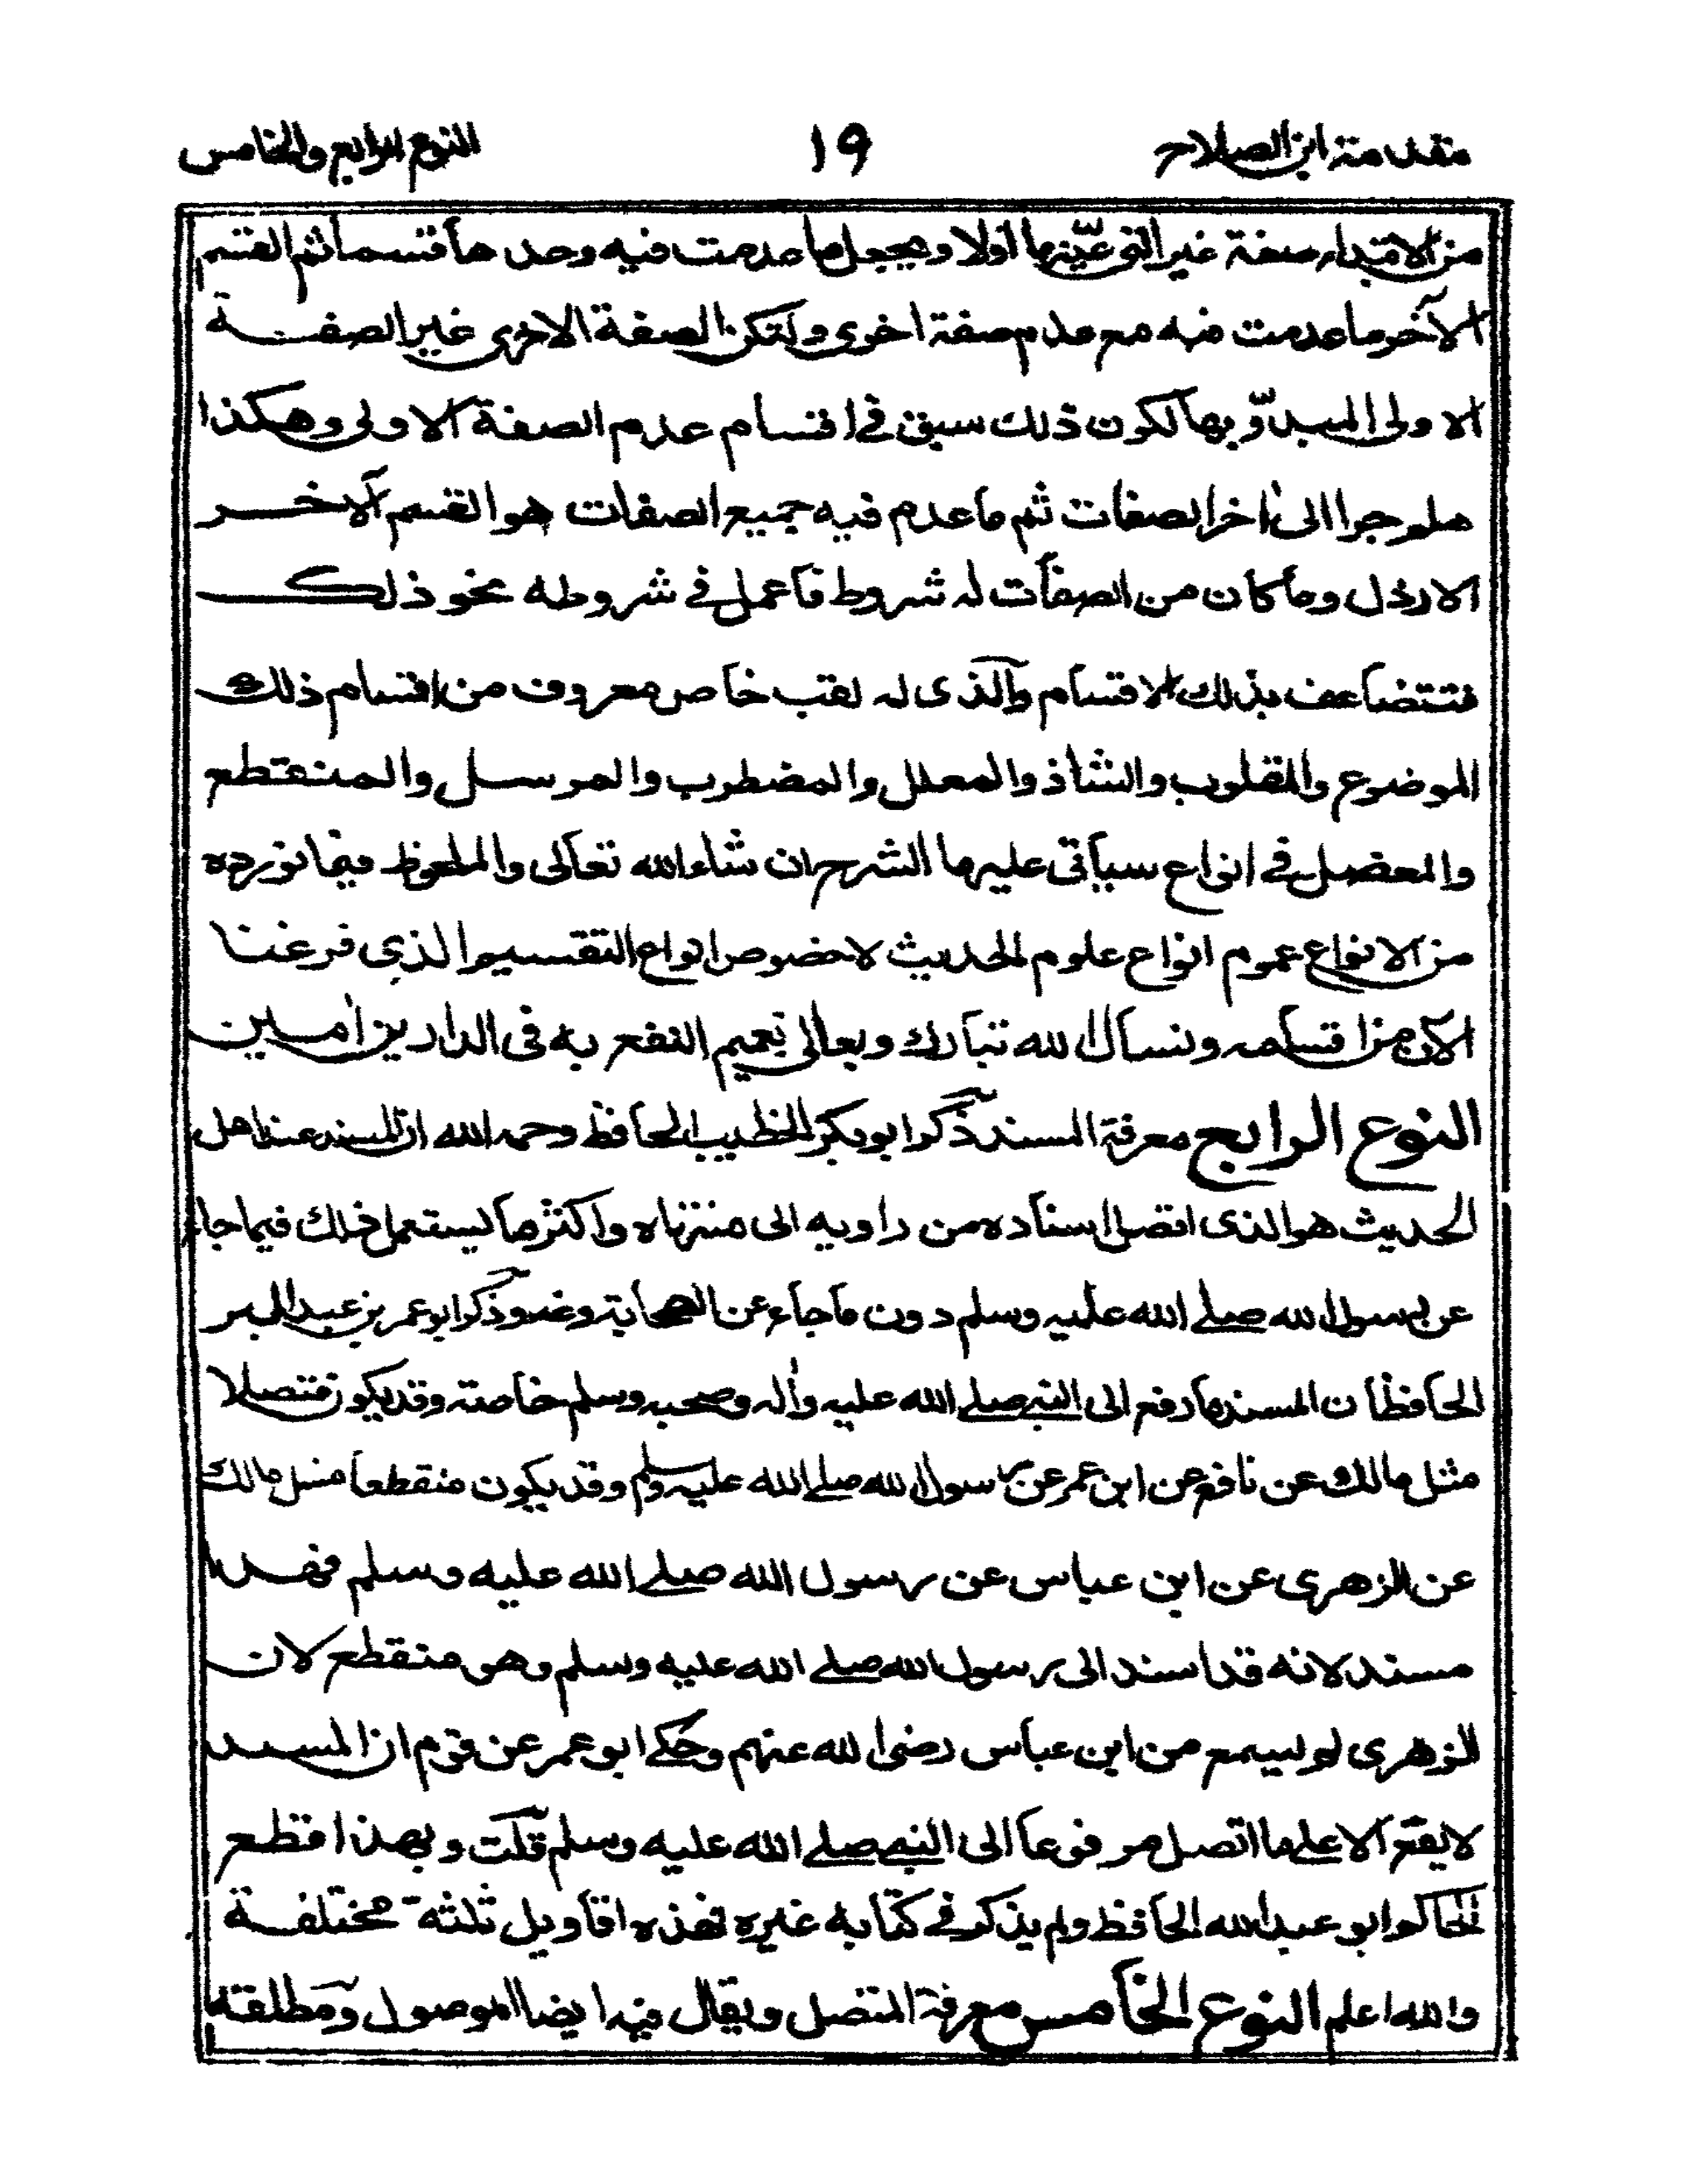 مقدمة ابن الصلاح ١٩ النوع الرابع والخامس
من الابتداء بصفة غير التى عيّنها اولا ويجعل ما عدمت فيه وحدها قسما ثم القسم
الآخر ما عدمت فيه مع عدم صفة اخرى ولتكن الصفة الاخرى غير الصفة
الاولى المبدوّ بها لكون ذلك سبق فى اقسام عدم الصفة الاولى وهكذا
هلم جرا الى اخر الصفات ثم ما عدم فيه جميع الصفات هو القسم الاخر
الارذل وما كان من الصفات له شروط فاعمل فى شروطه نحو ذلك
فتتضاعف بذلك الاقسام والذى له لقب خاص معروف من اقسام ذلك
الموضوع والمقلوب والشاذ والمعلل والمضطرب والمرسل والمنقطع
والمعضل فى انواع سياتى عليها الشرح ان شاء الله تعالى والملحوظ فيما نورده
من الانواع عموم انواع علوم الحديث لا خصوص انواع التقسيم الذى فرغنا
الان من اقسامه ونسال الله تبارك وتعالى تعميم النفع به فى الدارين اٰمين
النوع الرابع معرفة المسند ذكر ابو بكر الخطيب الحافظ رحمه الله ان المسند عند اهل
الحديث هو الذى اتصل اسناده من راويه الى منتهاه واكثر ما يستعمل ذلك فيما جاء
عن رسول الله صلے الله عليه وسلم دون ما جاء عن الصحابة وغيرهم وذكر ابو عمر بن عبد البر
الحافظ ان المسند ما رفع الى النبے صلے الله عليه واٰله وصحبه وسلم خاصة وقد يكون متصلا
مثل مالك عن نافع عن ابن عمر عن رسول الله صلے الله عليه وسلم وقد يكون منقطعا مثل مالك
عن الزهرى عن ابن عباس عن رسول الله صلے الله عليه وسلم فهذا
مسند لانه قد اسند الى رسول الله صلے الله عليه وسلم وهو منقطع لان
الزهرى لم يسمع من ابن عباس رضى الله عنهم وحكے ابو عمر عن قوم ان المسند
لا يقع الا علے ما اتصل مرفوعا الى النبے صلے الله عليه وسلم قلت وبهذا قطع
الحاكم ابو عبد الله الحافظ ولم يذكر فى كتابه غيره فهذه اقاويل ثلثة مختلفة
والله اعلم النوع الخامس معرفة المتصل ويقال فيه ايضا الموصول ومطلقه